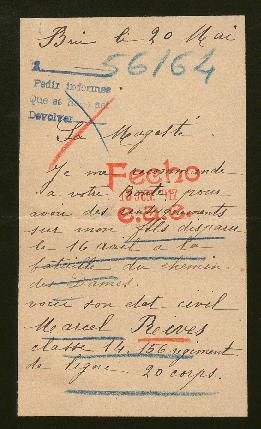 Brie le 20 Mai
56164
A
Pedir informes
Que se
Devolver
Sa Magesté
Je me recommande
Fecho
a votre Bonté pour
18 JUN. 917
avoir des renseignements
sur mon fils disparu
le 16 avril a la
bataille du chemin
des Dames.
voici son etat civil
Marcel Reives
classe 14. 156 regiment
de ligne 20 corps.